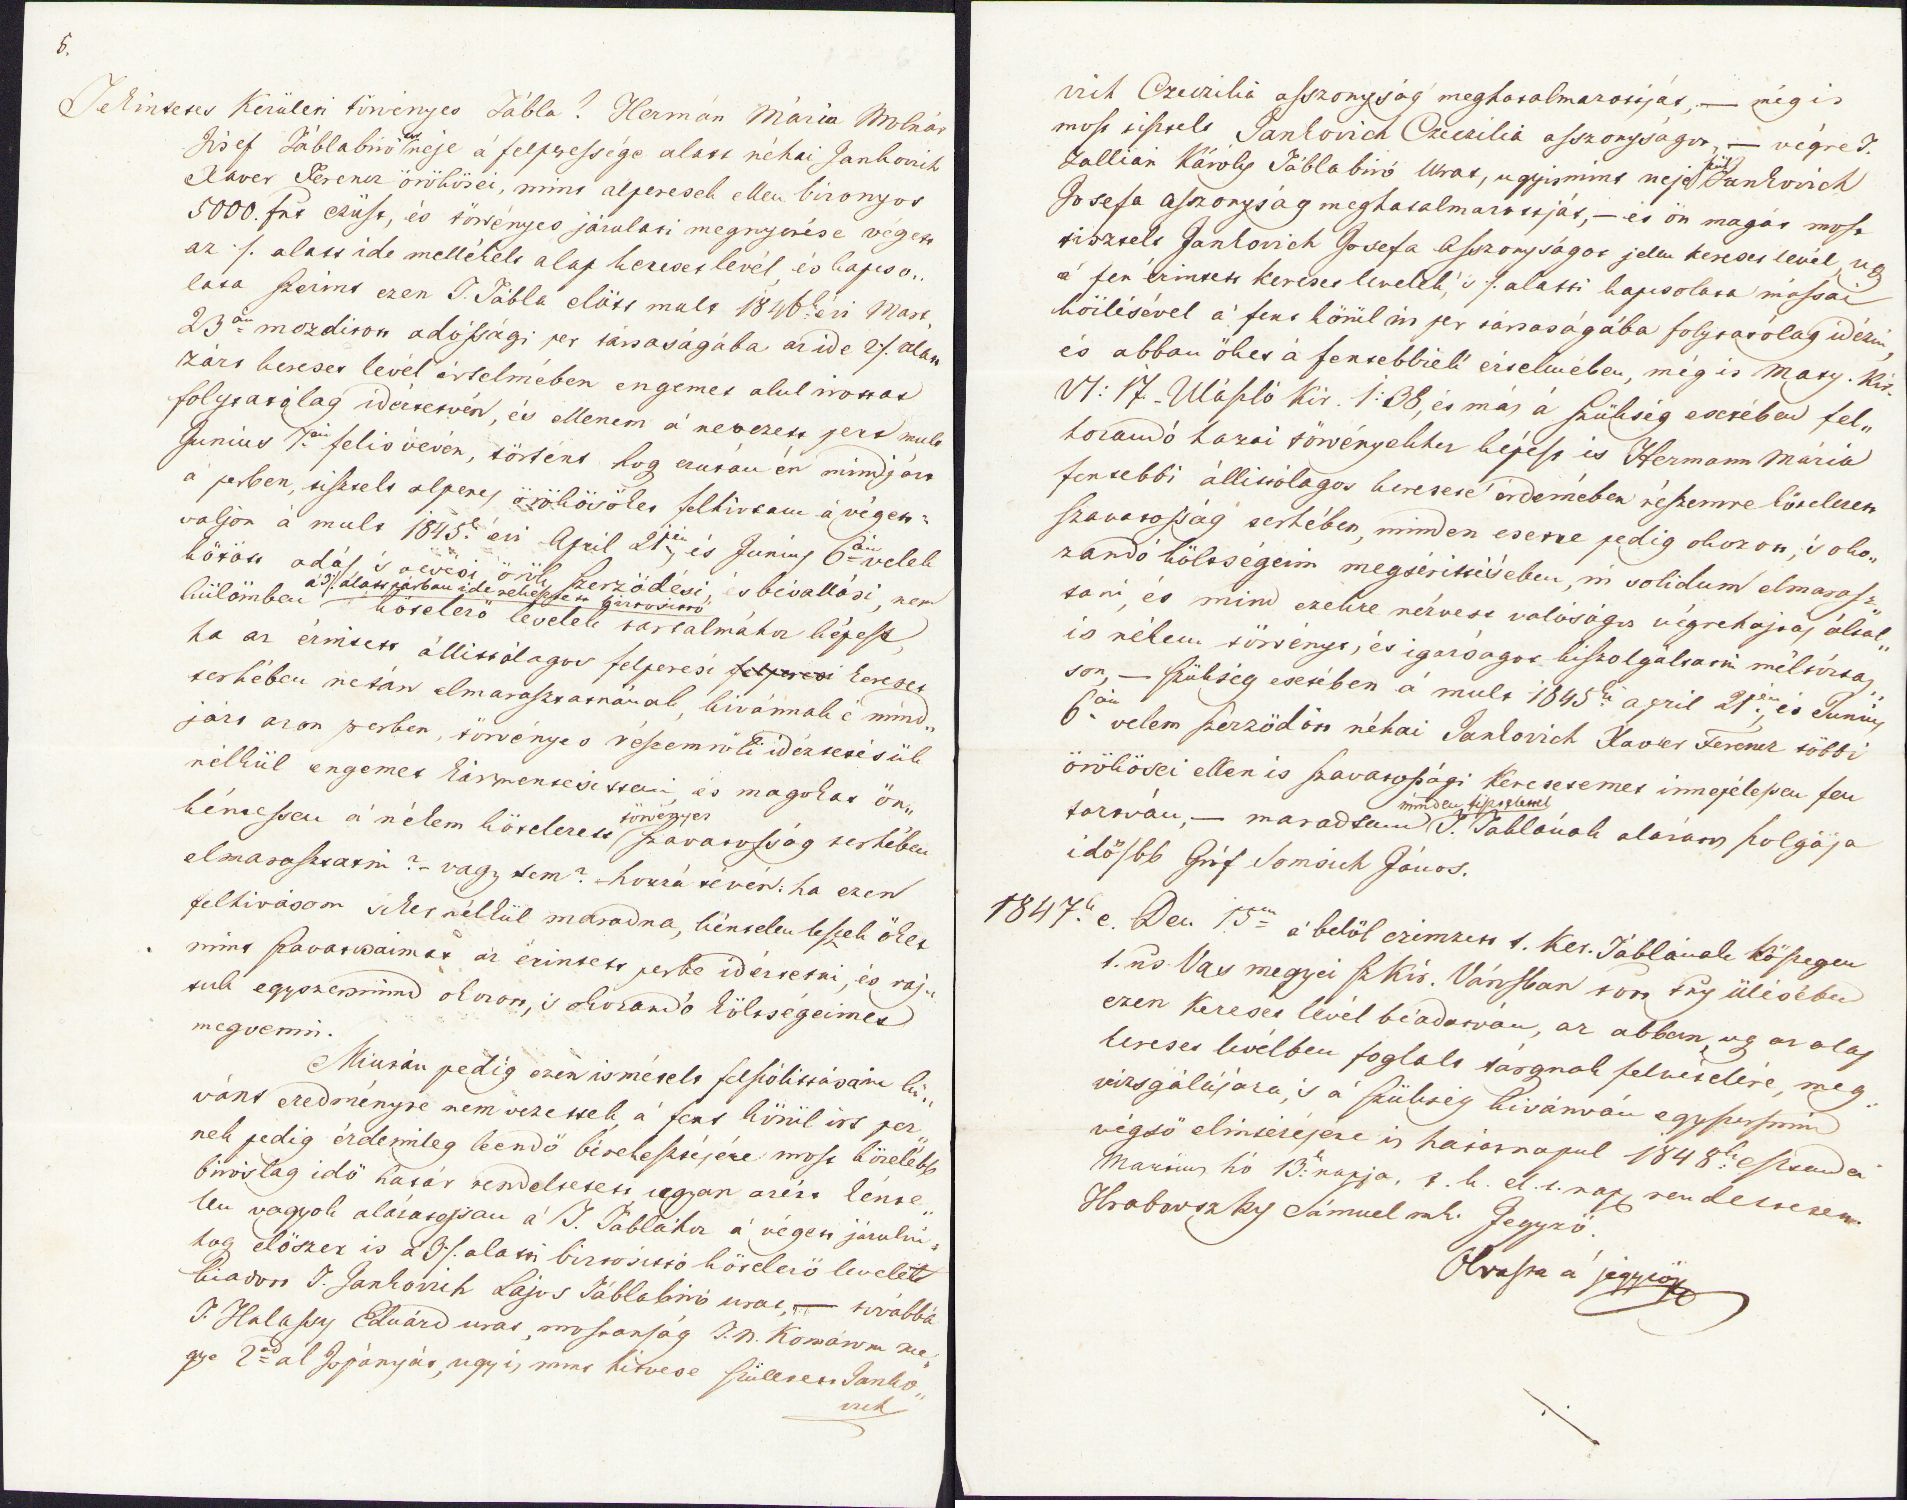 5.
Tekintetes Kerületi törvényes Tábla! Hermán Mária Molnár
Jósef Táblabiró Ur néje á felperessége alatt néhai Jankovich
Xaver Ferencz örökösei, mint alperesek ellen bizonyos
5000. fnt ezüst, és törvényes járulati megnyerése végett
az ·/. alatt ide mellékelt alap kereset levél, és kapcso„
lata szerint ezen T. Tábla elött mult 1846k évi Mart.
23án mozditott adóssági per társaságába az ide 2/. alatt
zárt kereset levél értelmében engemet alul irottat
folytatólag idéztetvén, és ellenem á nevezett pert mult
Junius 7én felis vévén, történt hogy ezután én mindjárt
á perben, tisztelt alperes örökösöket felhivtam á végett=
valjon á mult 1845k évi April 21én, és Junius 6án velek
kötött adás és vevési örök szerzödési, és bévallási, nem
külömben á 3/. alatt párban ide rekesztett biztositó
kötelezö levelek tartalmához képest,
ha az érintett állitólagos felperesi felperesi kereset
terhében netán elmarasztatnának, kivánnak é mind„
járt azon perben, törvényes részemröli idéztetésük
nélkül engemet kármentesiteni, és magokat ön„
kéntessen á nékem kötelezett törvényes szavatosság terhében
elmarasztatni? – vagy nem? – hozzá tévén: ha ezen
felhivásom siker nélkül maradna, kéntelen leszek öket
mint szavatosaimat az érintett perbe idéztetni, és raj„
tuk egyszersmind okozott, és okozandó költségeimet
megvenni.
Miután pedig ezen ismételt felszólittásaim ki„
vánt eredményre nem vezettek, á fent körül irt per„
nek pedig érdemileg leendö bérekesztésére most közelebb
biróilag idö határ rendeltetett, ugyan azért kénte„
len vagyok alázatossan á T. Táblához á végett járulni=
hogy elöszer is á 3·/. alatti biztositó kötelezö levelét
kiadott T. Jankovich Lajos Táblabiró urat, — továbbá
T. Halassy Eduárd urat, mostanság T. N. Komárom me„
gye 2od al Ispányát, ugyis mint hitvese született Janko„
vich
vich Czeczilia asszonyság meghatalmazottját, — még is
most tisztelt Jankovich Czeczilia asszonyságot, — végre T.
Zallián Károly Táblabiró Urat, ugyismint neje szül Jankovich
Josefa asszonyság meghatalmazottját, — és ön magát most
tisztelt Jankovich Josefa Asszonyságot jelen kereset levél, ugy
á fen érintett kereset levelek, 's ·/. alatti kapcsolata mássai
közlésével á fent körül irt per társaságába folytatólag idézni,
és abban öket á fentebbiek értelmében, még is Maty. Kir.
VI: 17. – Ulászló Kir. 1: 38, és más á szükség esetében fel„
hozandó hazai törvényekhez képest is Hermann Mária
fentebbi állitólagos keresete érdemében részemre kötelezett
szavatosság terhében, minden esetre pedig okozott, 's oko„
zandó költségeim megtérittésében, in solidum elmarasz„
tani, és mind ezekre nézvest valóságos végrehajtás által„
is nékem törvényt, és igazságot kiszolgáltatni méltóztas„
son, — szükség esetében á mult 1845ki april 21én, és Junius
6án velem szerzödött néhai Jankovich Xavér Ferencz többi
örökösei ellen is szavatossági keresetemet innepélyesen fen
tartván, — maradtam minden tisztelettel T. Táblának alázatos szolgája
idösbb Gróf Somsich János.
1847k e. Dec 15én á belöl czimzett t. Ker. Táblának Köszegen
t. ns. Vas megyei Sz Kir. Városban tartott tny ülésében
ezen Kereset levél béadatván, az abban, ug az alap
kereset levélben foglalt tárgynak felvételére, meg„
vizsgálására, 's á szükség kivánván egyszersmind
végsö elintézésére is határnapul 1848k esztendei
Martius hó 13k napja, t. k. el. t. nap rendeltetett.
Hrabovszky Sámuel mk. Jegyzö.
Olvasta á jegyzö